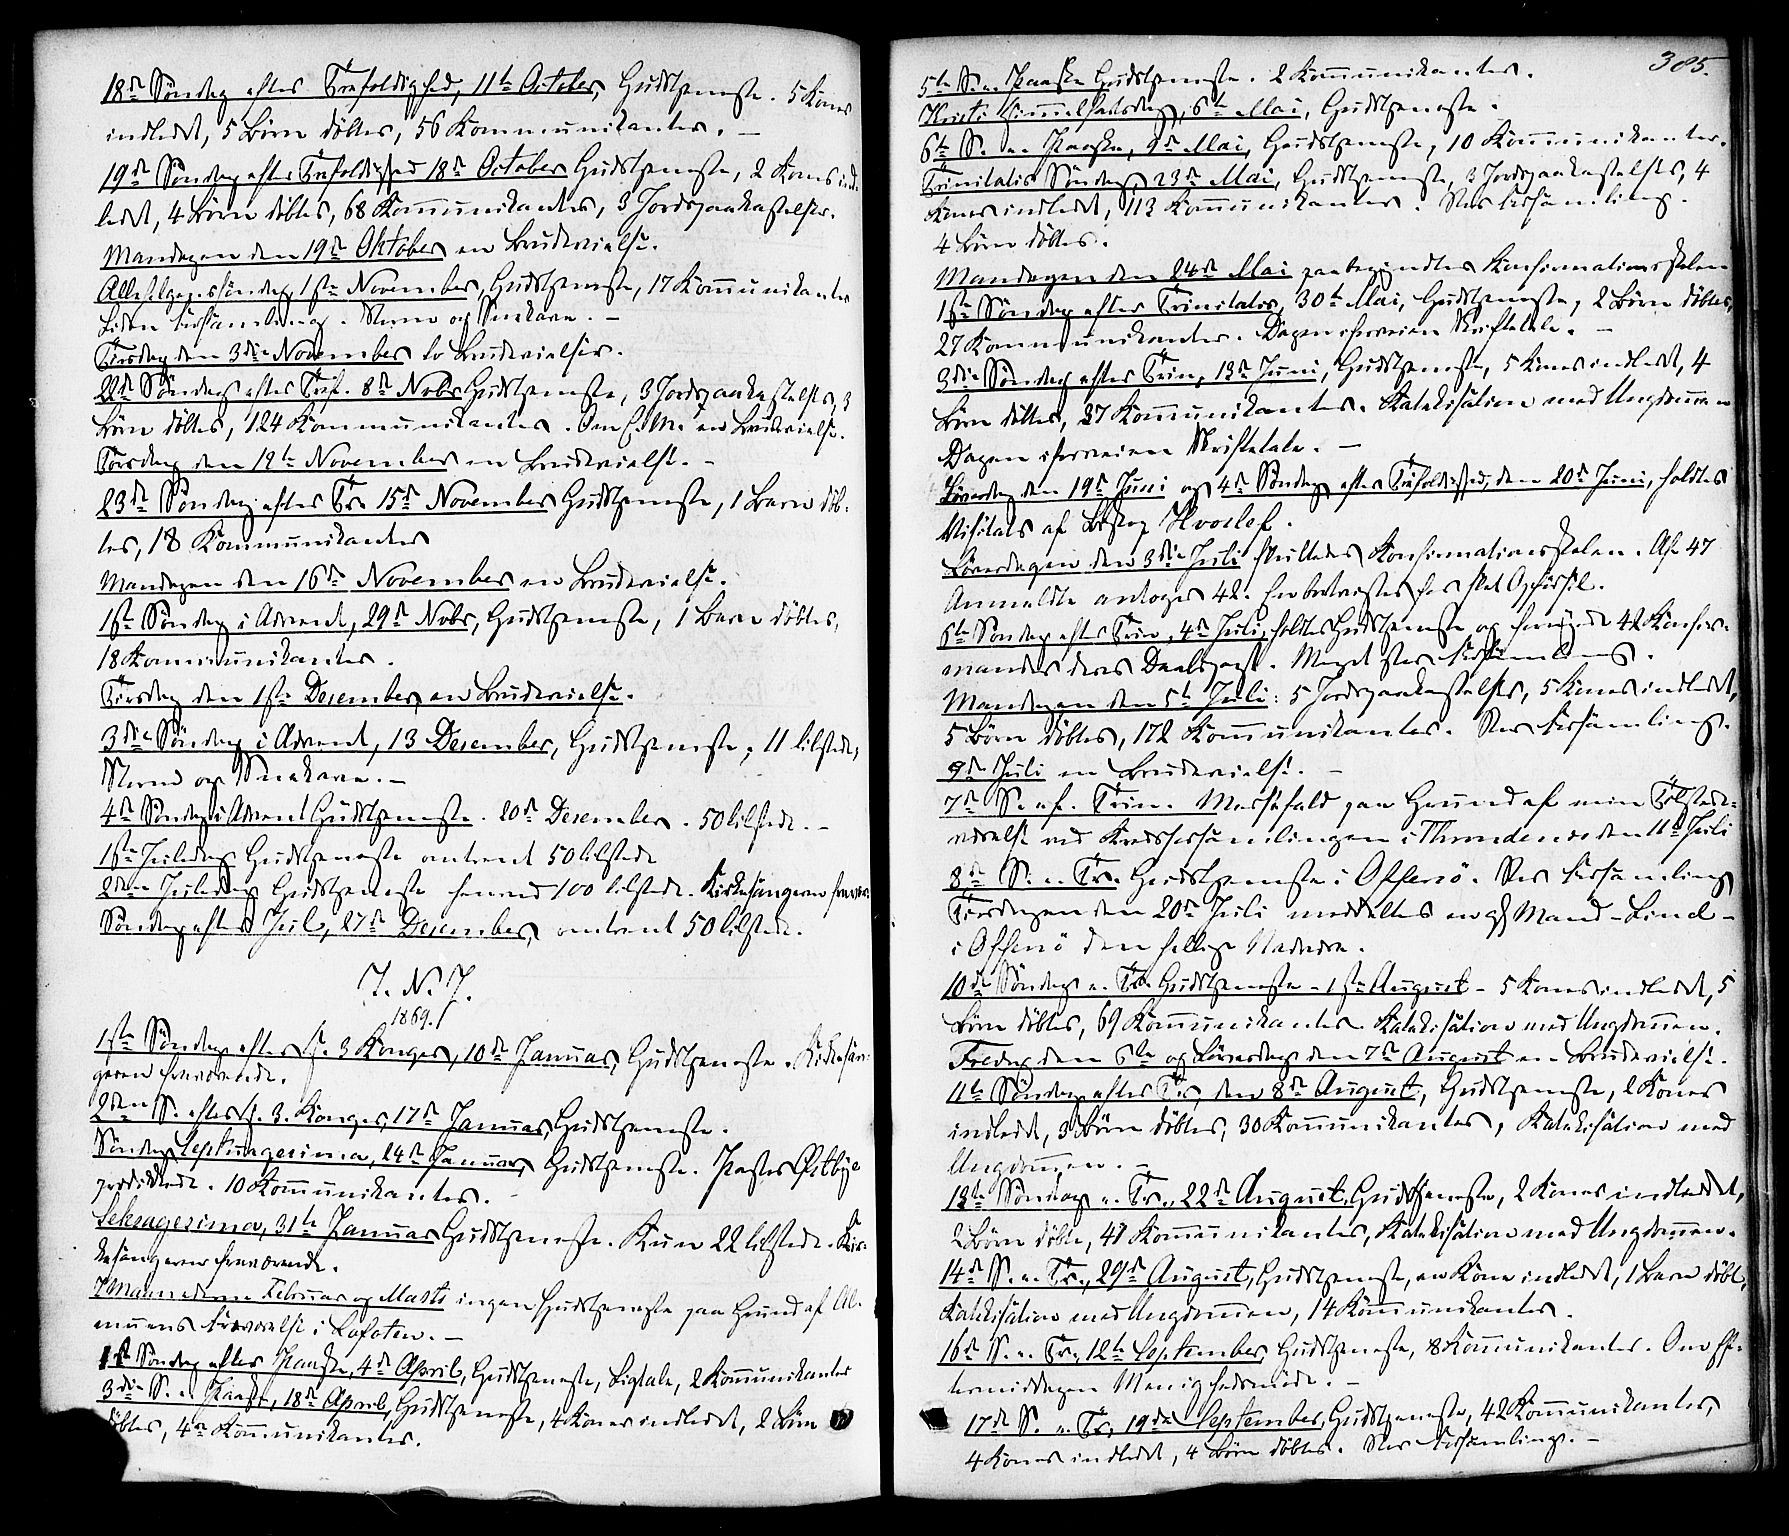 18de Søndag efter Trefoldighed, 11te October, Gudstjeneste. 5 Koner
indledt, 5 Børn døbtes, 56 Kommunikanter. —
19de Søndag efter Trefoldighed 18de October Gudstjeneste, 2 Koner ind-
ledt, 4 Børn døbtes, 68 Kommunikanter, 3 Jordpaakastelser.
Mandagen den 19de Oktober en Brudevielse.
Allehelgenssøndag, 1ste November, Gudstjeneste, 17 Kommunikanter
Liden Forsamling. Storm og Snekave. —
Tirsdag den 3die November to Brudevielser.
22de Søndag efter Tref. 8de Novbr Gudstjeneste, 3 Jordpaakastelser, 3
Børn døbtes, 124 Kommunikanter. Om E.M. en Brudevielse.
Torsdag den 12te November en Brudevielse. -
23de Søndag efter Tr. 15de November Gudstjeneste, 1 Barn døb-
tes, 18 Kommunikanter
Mandagen den 16de November en Brudevielse.
1ste Søndag i Advent, 29de Novbr, Gudstjeneste, 1 Barn døbtes,
18 Kommunikanter.
Tirsdag den 1ste Desember en Brudevielse.
3die Søndag i Advent, 13 Desember, Gudstjeneste, 11 tilstede,
Storm og Snekave. —
4de Søndag i Advent Gudstjeneste. 20de Desember. 50 tilstede. —
1ste Juledag Gudstjeneste omtrent 50 tilstede
2den Juledag Gudstjeneste henved 100 tilstede. Kirkesangeren fravær.
Søndag efter Jul, 27de Desember, omtrent 50 tilstede.
J. N. J.
1869.
1ste Søndag efter H. 3 Konger, 10de Januar, Gudstjeneste. Kirkesan-
geren fraværende.
2den S. efter H. 3. Konger, 17de Januar, Gudstjeneste.
Søndag Septuagesima, 24de Januar, Gudstjeneste. Pastor Østbye
prædikede. 10 Kommunikanter.
Seksagesima, 31te Januar Gudstjeneste. Kun 22 tilstede. Kir-
kesangeren fraværende.
I Maanederne Februar og Marts ingen Gudstjeneste paa Grund af Al-
muens Fravær­else i Lofoten. —
1ste Søndag efter Paaske, 4de April, Gudstjeneste, Ligtale, 2 Kommunikanter
3die S. e. Paaske, 18de April, Gudstjeneste, 4 Koner indledt, 2 Børn
døbtes, 4 Kommunikanter.
385.
5te S. e. Paaske Gudstjeneste. 2 Kommunikanter.
Kristi Himmelfartsdag, 6te Mai, Gudstjeneste.
6te S. e. Paaske, 9de Mai, Gudstjeneste, 10 Kommunikanter.
Trinitatis Søndag, 23de Mai, Gudstjeneste, 3 Jordpaakastelser, 4
Koner indledt, 113 Kommunikanter. Stor Forsamling.
4 Børn døbtes.
Mandagen den 24de Mai paabegyndtes Konfirmationsskolen
1ste Søndag efter Trinitatis, 30te Mai, Gudstjeneste, 2 Børn døbtes,
27 Kommunikanter. Dagen iforveien Skriftetale. —
3die Søndag efter Trin, 13de Juni, Gudstjeneste, 5 Koner indledt, 4
Børn døbtes, 37 Kommunikanter. Katekisation med Ungdommen
Dagen iforveien Skriftetale. —
Løverdag den 19de Juni og 4de Søndag efter Trefoldighed, den 20de Juni, holdtes
Visitats af Biskop Hvoslef.
Løverdagen den 3die Juli sluttedes Konfirmationsskolen. Af 47
Anmeldte antoges 42.
6te Søndag efter Trin, 4de Juli, holdtes Gudstjeneste og fornyede 42 Konfir-
mander deres Daabspagt. Meget stor Forsamling.
Mandagen den 5te Juli: 5 Jordpaakastelser, 5 Koner indledt,
5 Børn døbtes, 172 Kommunikanter. Stor Forsamling.
9de Juli en Brudevielse. —
7de S. ef. Trin. Messefald paa Grund af min Tilstede-
værelse ved Kredsforsamlingen i Throndenes den 11te Juli
8de S. e. Tr. Gudstjeneste i Offersø. Stor Forsamling
Tirsdagen den 20de Juli meddeltes en gl Mand - Lind -
i Offersø den hellige Nadvere.
10de Søndag e. Tr. Gudstjeneste - 1ste August - 5 Koner indledt, 5
Børn døbtes, 69 Kommunikanter. Katekisation med Ungdommen.
Fredag den 6te og Løverdag den 7de August en Brudevielse.
11te Søndag efter Tr, den 8de August, Gudstjeneste, 2 Koner
indledt, 3 Børn døbtes, 30 Kommunikanter, Katekisation med
Ungdommen. —
13te Søndag e. Tr., 22de August, Gudstjeneste, 2 Koner indledt,
2 Børn døbte, 41 Kommunikanter, Katekisation med Ungdommen.
14de S. e. Tr., 29de August, Gudstjeneste, en Kone indledt, 1 Barn døbt,
Katekisation med Ungdommen, 14 Kommunikanter.
16de S. e. Tr, 12te September, Gudstjeneste, 8 Kommunikanter. Om Ef-
termiddagen Menighedsmøde. —
17de S. e. Tr, 19de September, Gudstjeneste, 42 Kommunikanter,
4 Koner indledt, 4 Børn døbtes. Stor Forsamling. —